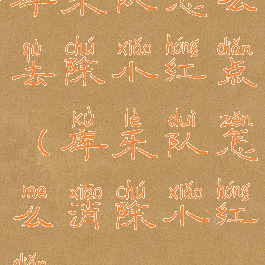 qù chú xiǎo hóng diǎn
去除小红点
kù lè duì zěn
(库乐队怎
me xiāo chú xiǎo hóng
么消除小红
diǎn